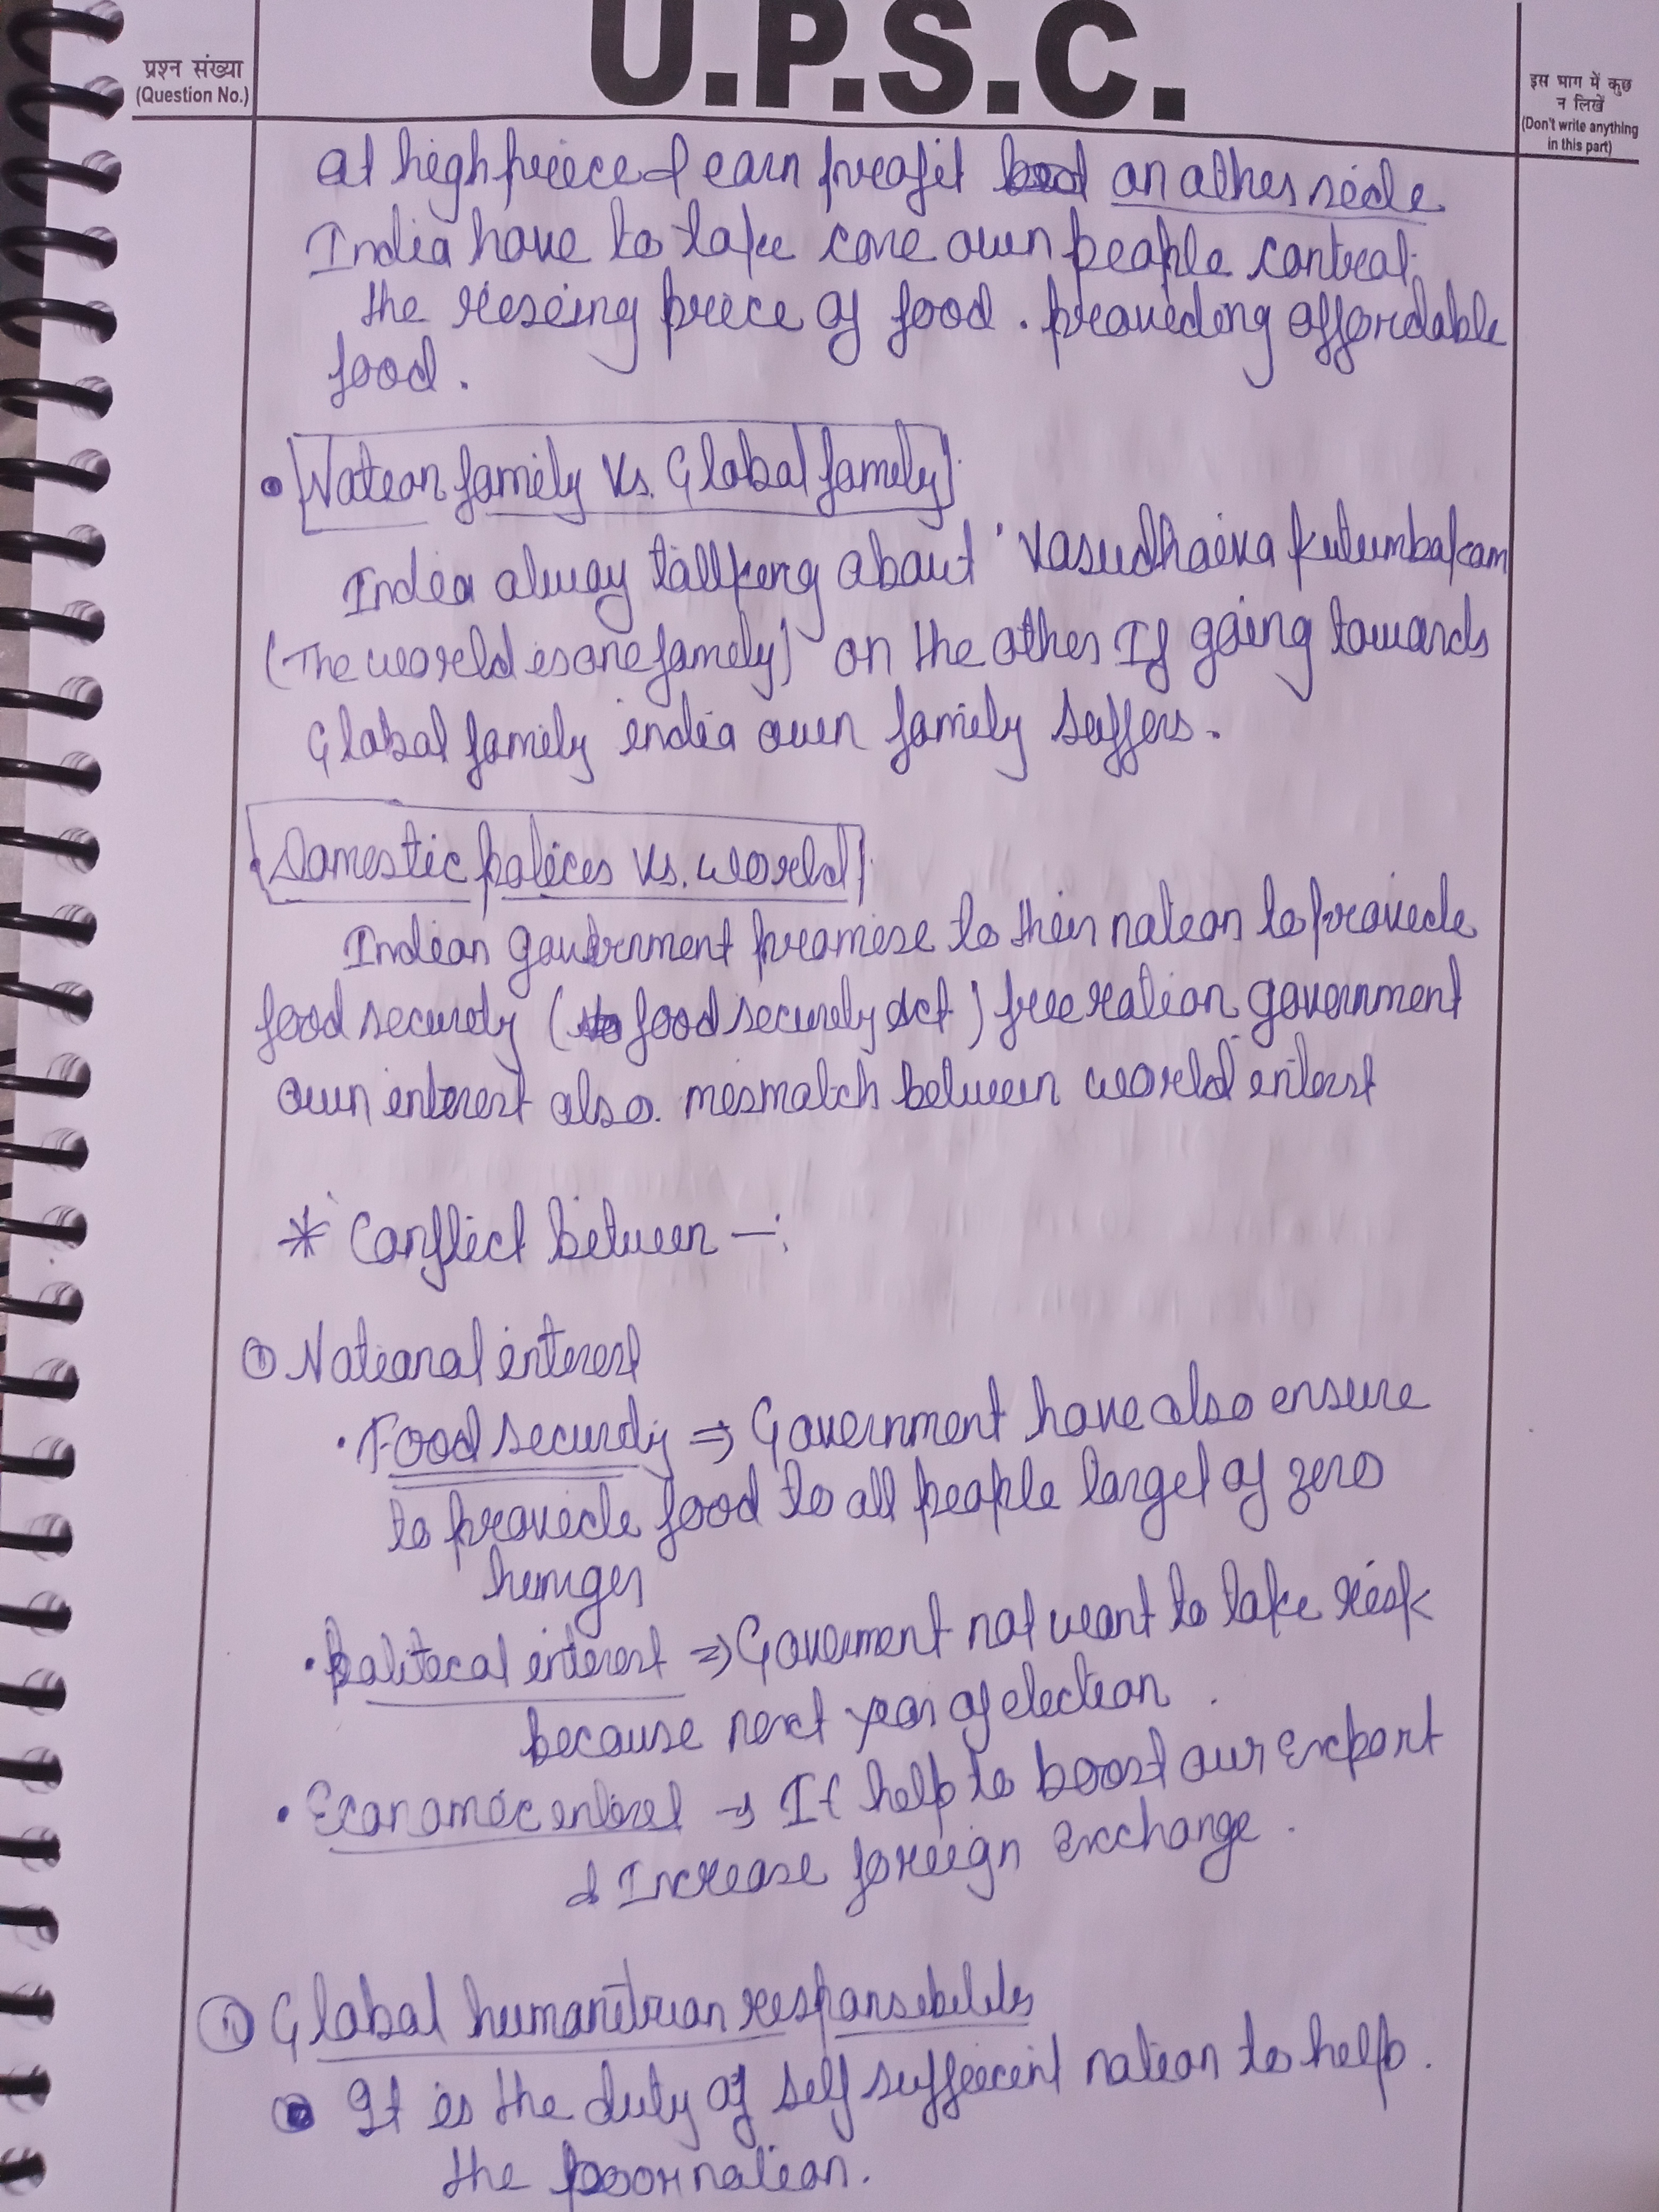 U.P.S.C.
प्रश्न संख्या
(Question No.)
इस भाग में कुछ
न लिखें
(Don't write anything
in this part)
at high price & earn profit an other side
India have to take care own people control
the riseing price of food. provideing affordable
food.
• Nation family Vs. Global family
India alway tallking about 'Vasudhaiva kutumbakam
(The world is one family) on the other If going towards
Global family india own family suffers.
• Domestic polices Vs. world
Indian government promise to their nation to provide
food security (food security Act) free ration government
own interest also. mismatch between world interst
* Conflict between —:
① National interest
• Food security ⇒ Government have also ensure
to provide food to all people target of zero
hunger
• political interest ⇒ Goverment not want to take risk
because next year of election.
• Economic interest → It help to boost our export
& Increase foreign exchange.
① Global humanitrian responsibilites
• It is the duty of self sufficient nation to help.
the poor nation.